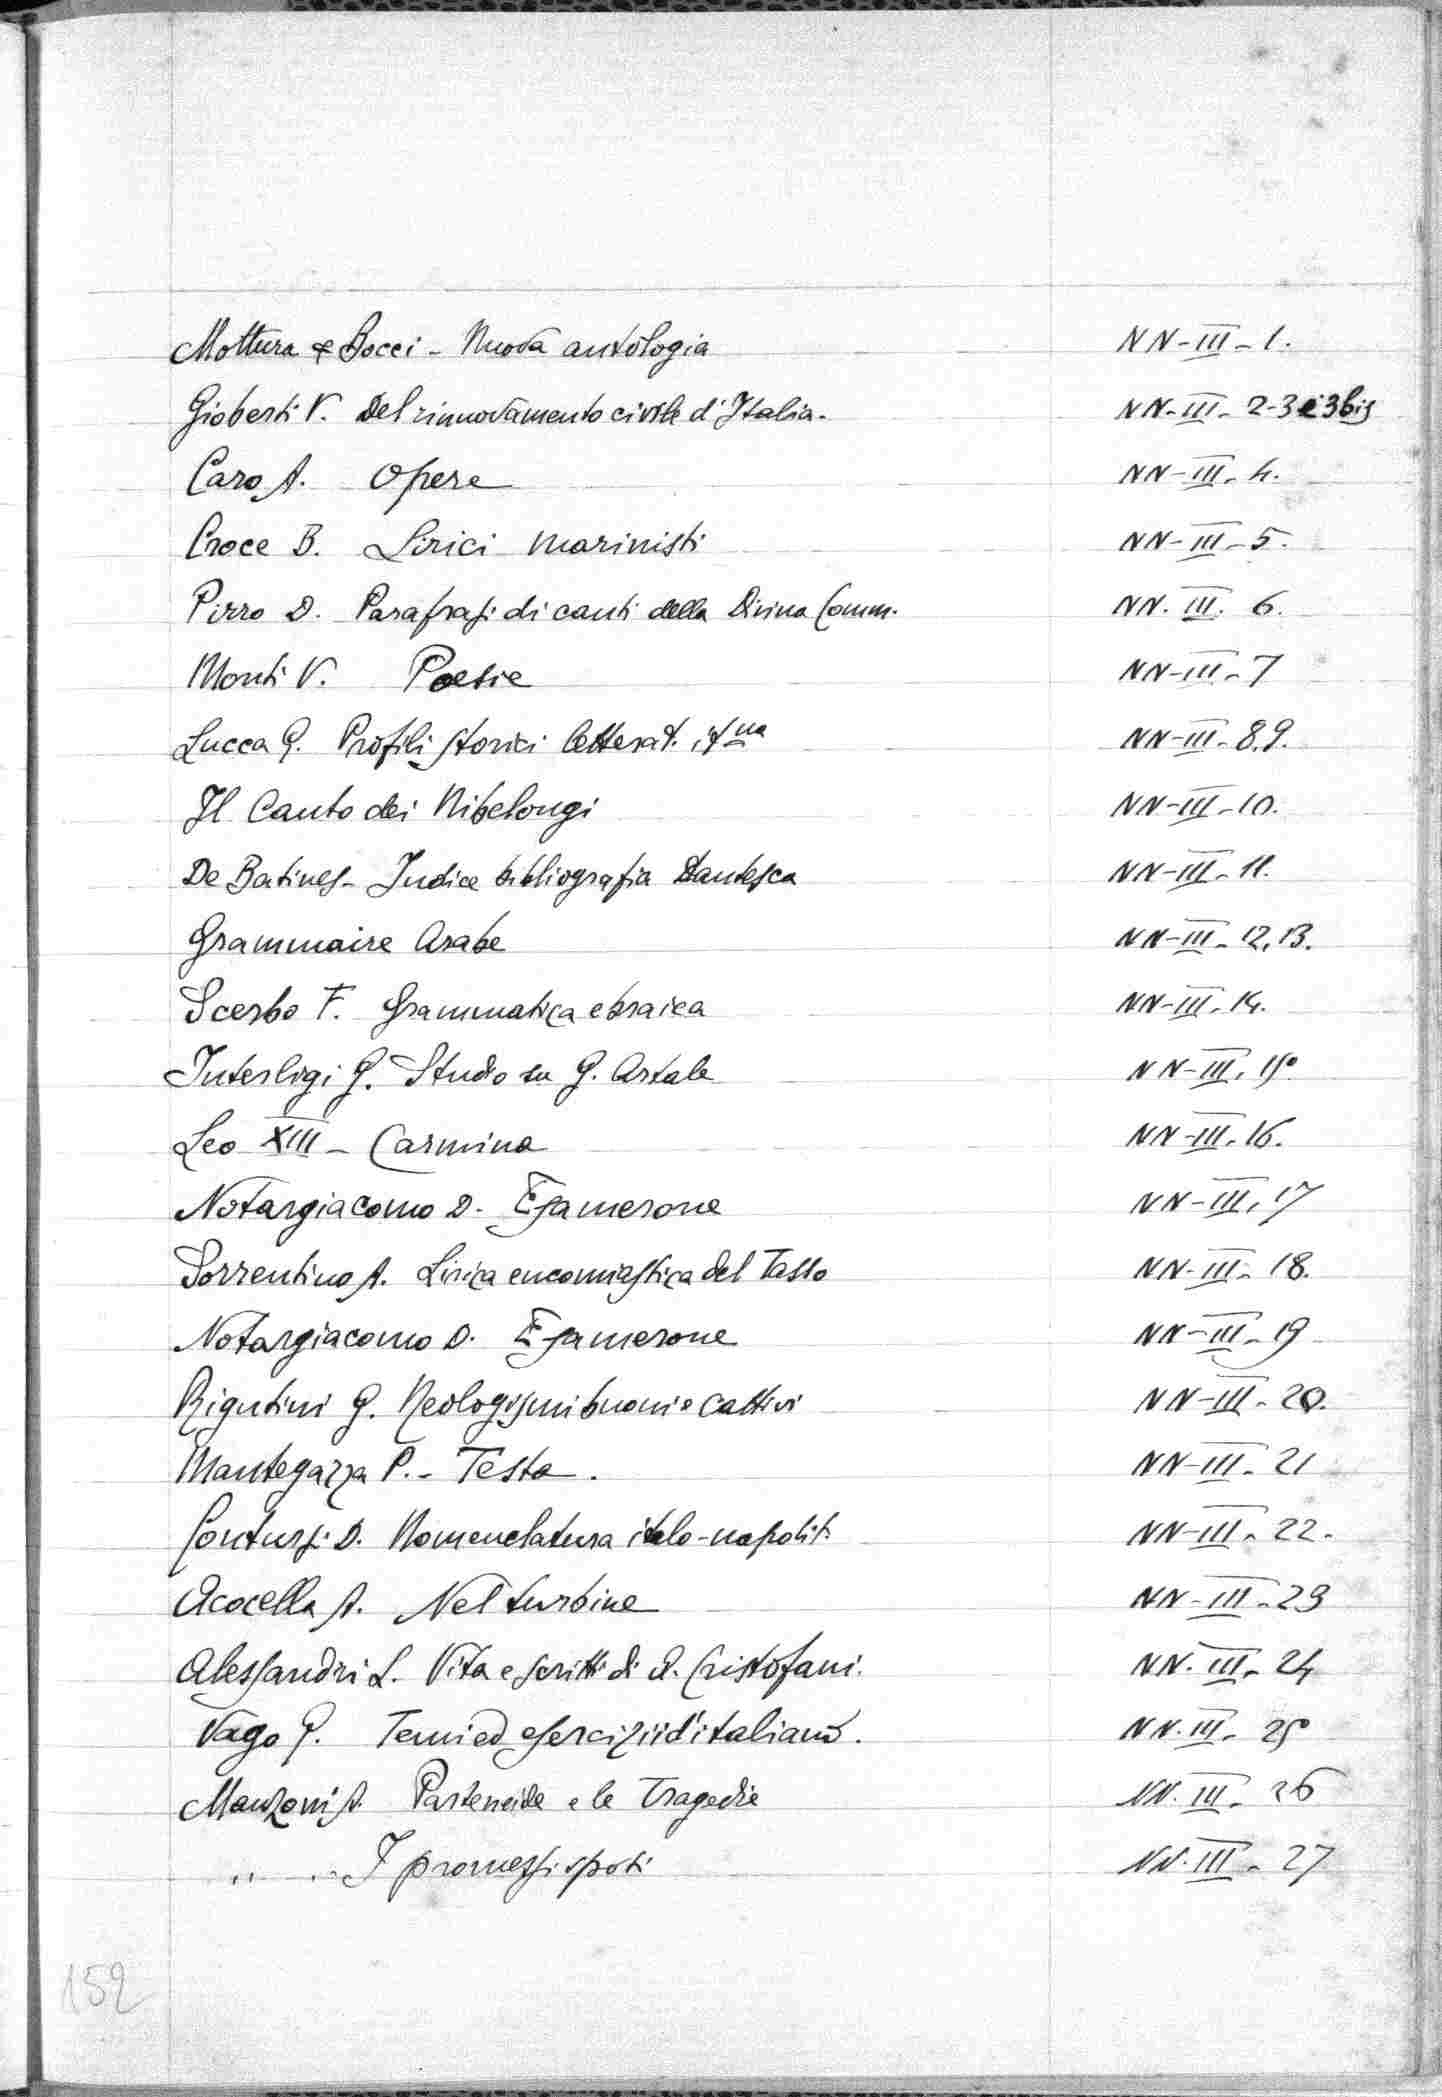 Mottura e Bocci - Nuova antologia NN-III-1.
Gioberti V. Del rinnovamento civile d'Italia. NN-III-2-3 e 3bis
Caro A. Opere NN-III-4.
Croce B. Lirici marinisti NN-III-5.
Pirro D. Parafrasi di canti della Divina Comm. NN. III. 6.
Monti V. Poesie NN-III-7
Lucca G. Profili storici letterat. itna NN-III-8.9.
Il Canto dei Nibelongi NN-III-10.
De Batines - Indice bibliografia Dantesca NN-III-11.
Grammaire Arabe NN-III-12,13.
Scerbo F. Grammatica ebraica NN-III.14.
Interligi G. Studio su G. Artale NN-III.15
Leo XIII - Carmina NN-III.16.
Notargiacomo D. Esamerone NN-III.17
Sorrentino A. Lirica encomiastica del Tasso NN-III-18.
Notargiacomo D. Esamerone NN-III-19
Rigutini G. Neologismi buoni e cattivi NN-III-20.
Mantegazza P. - Testa. NN-III-21
Contursi D. Nomenclatura italo-napolit. NN-III-22.
Acocella A. Nel turbine NN-III-23
Alessandri L. Vita e scritti di A. Cristofani. NN. III-24
Vago G. Temi ed esercizii d'italiano. NN. III-25
Manzoni A. Parteneide e le Tragedie NN. III-26
" " I promessi sposi NN. III-27
152